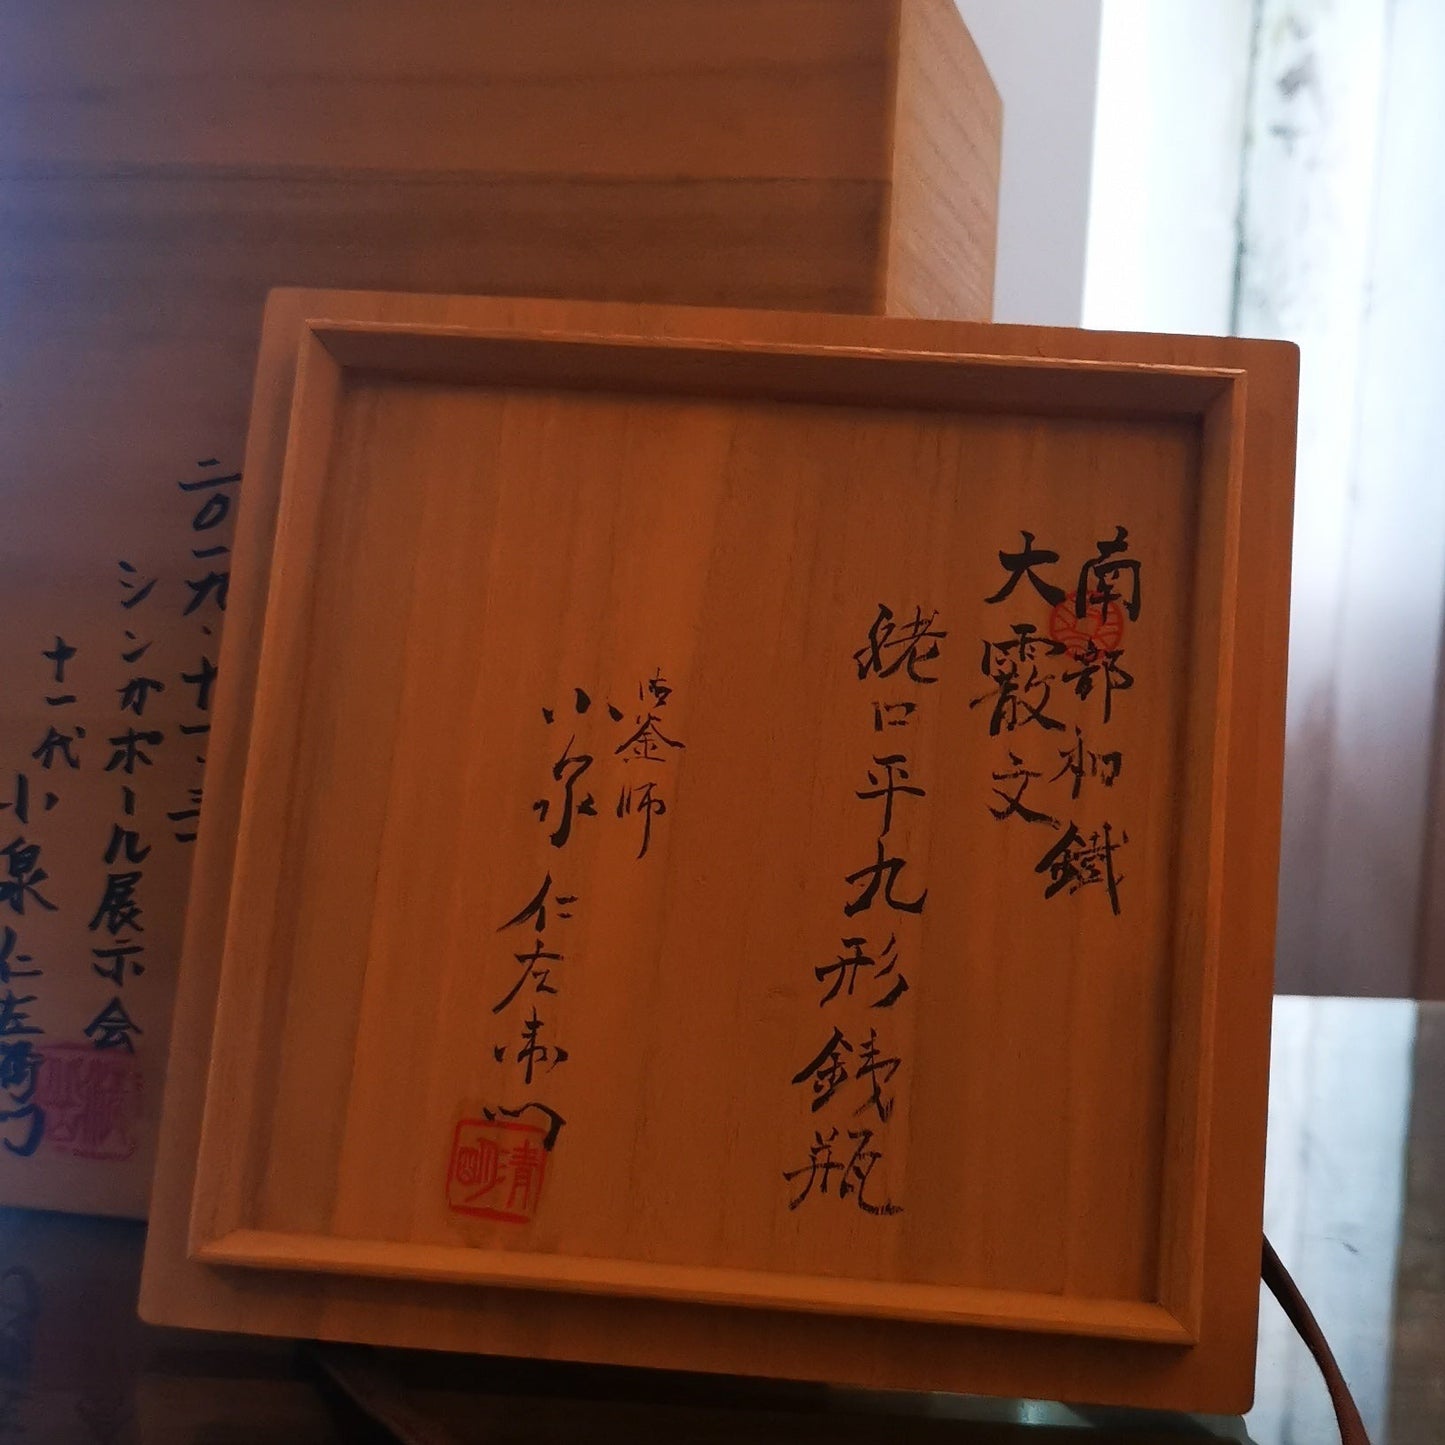 南部和鐵
大霰文
姥口平丸形鉄瓶
御釜師
小泉仁左衛門
清
二〇一九、十一、三
シンガポール展示会
十一代
小泉仁左衛門